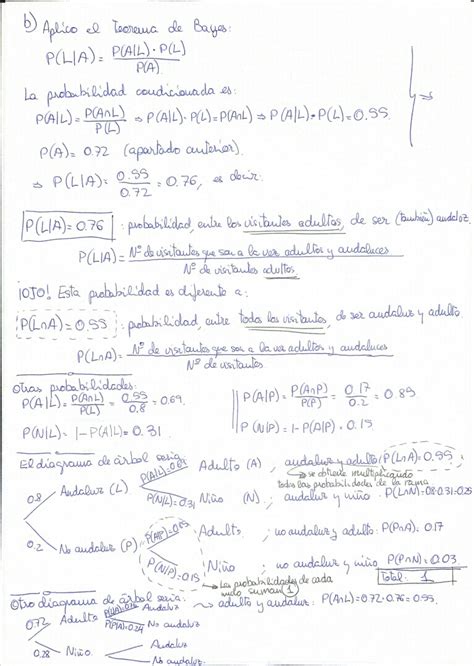 b) Aplico el Teorema de Bayes:
P(L|A) = P(A|L)·P(L) / P(A)
La probabilidad condicionada es:
P(A|L) = P(A∩L) / P(L) ⇒ P(A|L)·P(L) = P(A∩L) ⇒ P(A|L)·P(L) = 0.55
P(A) = 0.72 (apartado anterior).
⇒ P(L|A) = 0.55 / 0.72 = 0.76, es decir:
P(L|A) = 0.76 : probabilidad, entre los visitantes adultos, de ser (también) andaluz.
P(L|A) = Nº de visitantes que son a la vez adultos y andaluces / Nº de visitantes adultos
¡OJO! Esta probabilidad es diferente a:
P(L∩A) = 0.55 : probabilidad, entre todos los visitantes, de ser andaluz y adulto.
P(L∩A) = Nº de visitantes que son a la vez adultos y andaluces / Nº de visitantes
Otras probabilidades:
P(A|L) = P(A∩L) / P(L) = 0.55 / 0.8 = 0.69. P(A|P) = P(A∩P) / P(P) = 0.17 / 0.2 = 0.85
P(N|L) = 1-P(A|L) = 0.31 P(N|P) = 1-P(A|P) = 0.15
El diagrama de árbol sería:
P(A|L)=0.69 Adulto (A) ; andaluz y adulto: P(L∩A) = 0.55
se obtiene multiplicando
todas las probabilidades de la rama
0.8 Andaluz (L) P(N|L)=0.31 Niño (N) ; andaluz y niño : P(L∩N)=0.8·0.31=0.25
P(A|P)=0.85 Adulto ; no andaluz y adulto: P(P∩A) = 0.17
0.2 No andaluz (P) P(N|P)=0.15 Niño ; no andaluz y niño P(P∩N) = 0.03
La probabilidades de cada
nudo suman 1
Total: 1
Otro diagrama de árbol sería:
0.72 Adulto P(L|A)=0.76 Andaluz → adulto y andaluz: P(A∩L) = 0.72·0.76=0.55.
P(P|A)=0.24 No Andaluz
0.28 Niño Andaluz
No Andaluz